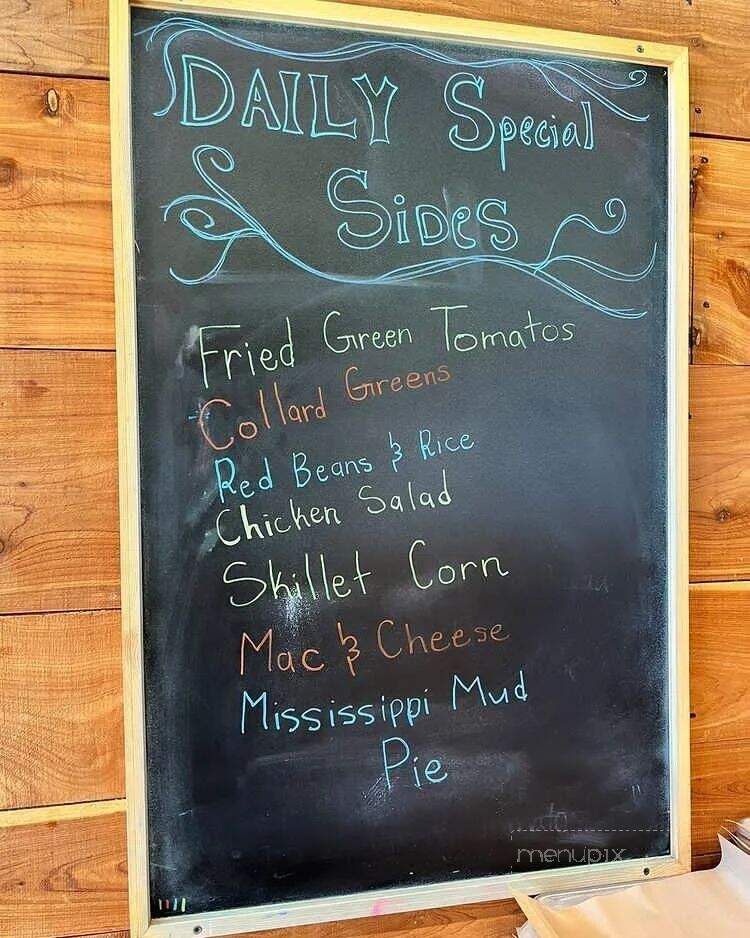 DAILY Special
Sides
Fried Green Tomatos
Collard Greens
Red Beans & Rice
Chicken Salad
Skillet Corn
Mac & Cheese
Mississippi Mud
Pie
menupix